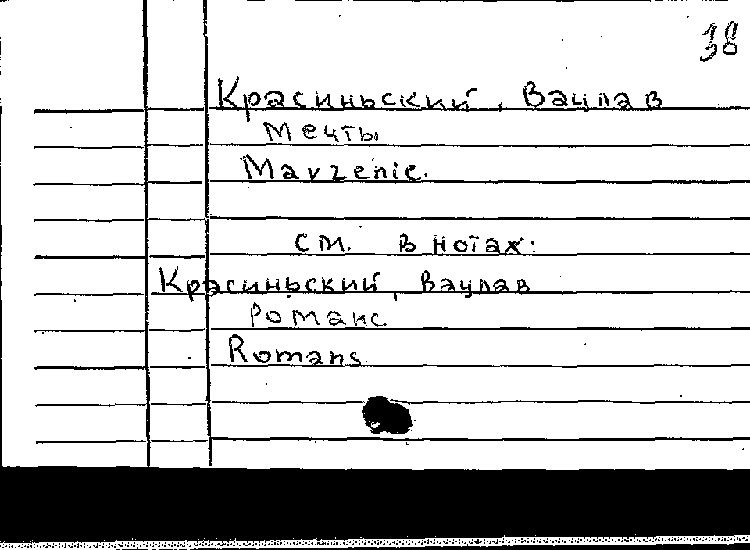 38
Красиньский, Вацлав
Мечты
Marzenie.
см. в нотах:
Красиньский, Вацлав
Романс
Romans